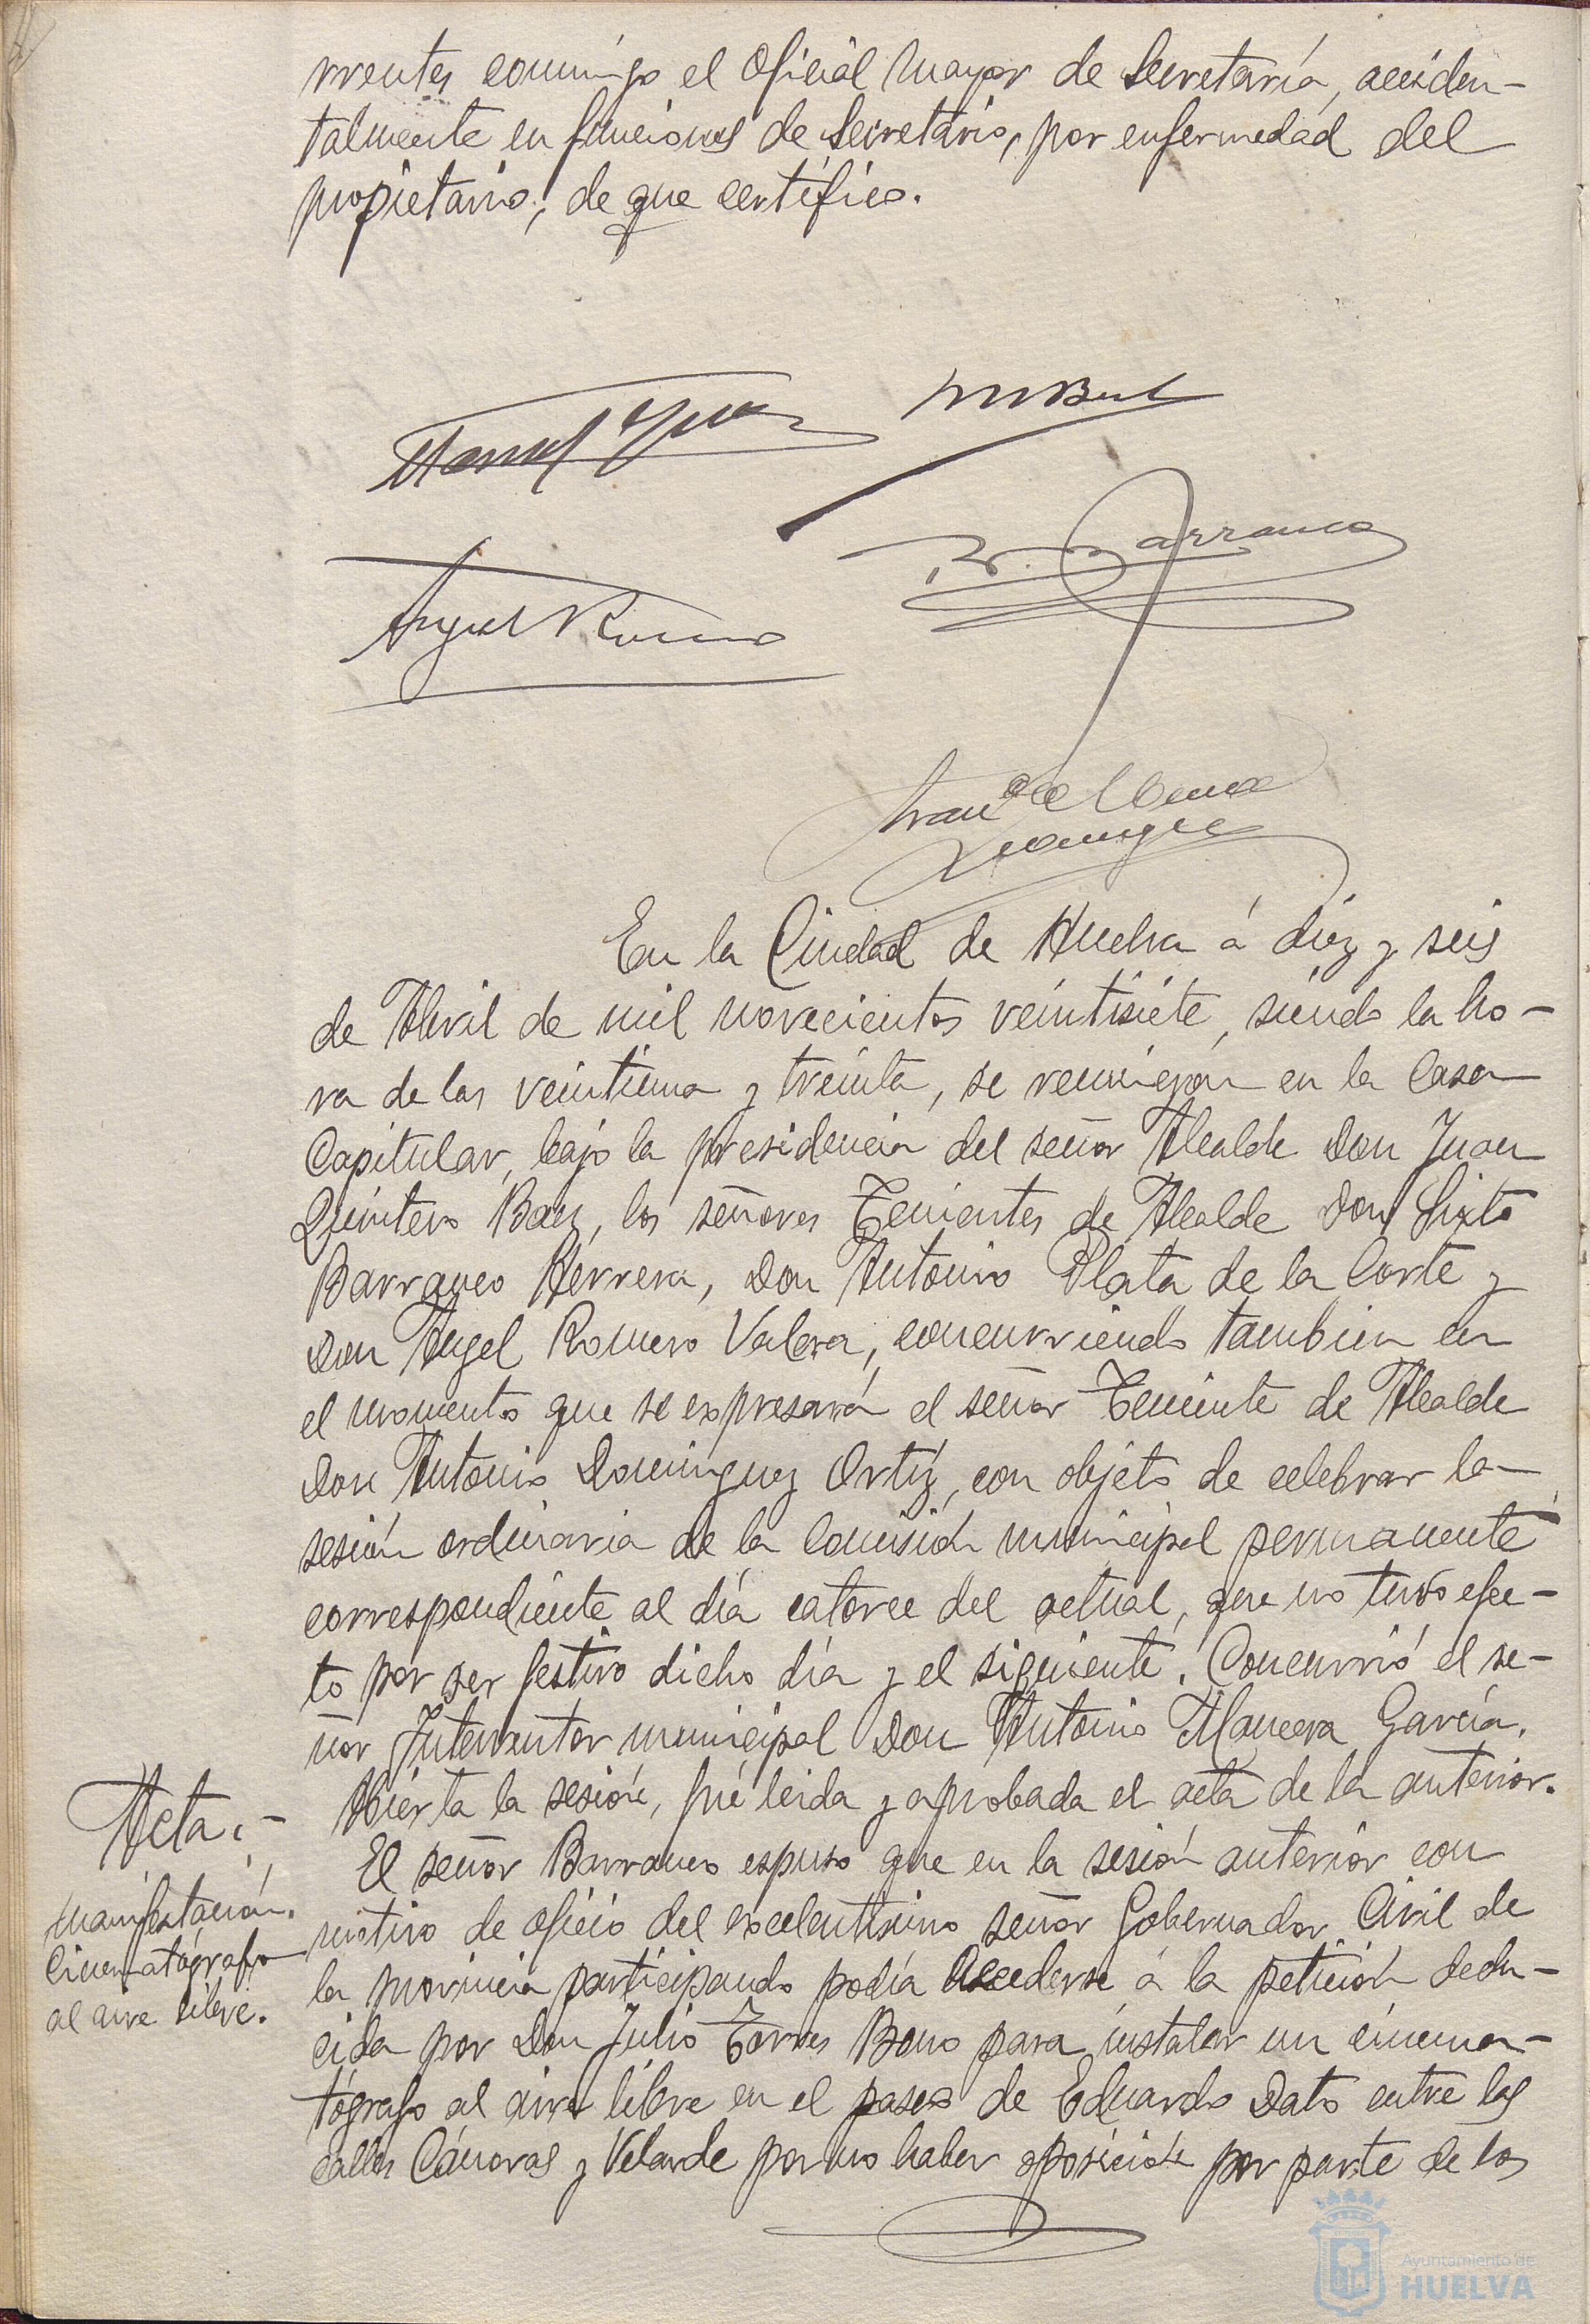 rrentes conmigo el Oficial Mayor de Secretaría, acciden-
talmente en funciones de Secretario, por enfermedad del
propietario, de que certifico.
Barranco
Angel Romero
En la Ciudad de Huelva á diez y seis
de Abril de mil novecientos veintisiete, siendo la ho-
ra de las veintiuna y treinta, se reunieron en la Casa
Capitular, bajo la presidencia del señor Alcalde Don Juan
Quintero Baez, los señores Tenientes de Alcalde Don Sixto
Barranco Herrera, Don Antonio Plata de la Corte y
Don Angel Romero Valera, concurriendo tambien en
el momento que se expresará el señor Teniente de Alcalde
Don Antonio Dominguez Ortíz, con objeto de celebrar la
sesión ordinaria de la Comisión municipal permanente
correspondiente al día catorce del actual, que no tuvo efec-
to por ser festivo dicho día y el siguiente. Concurrió el se-
ñor Interventor municipal Don Antonio Mancera García.
Acta.-
Abierta la sesión, fué leida y aprobada el acta de la anterior.
manifestación.
Cinematógrafo
al aire libre.
El señor Barranco espuso que en la sesión anterior con
motivo de oficio del excelentísimo señor Gobernador Civil de
la provincia participando podía accederse á la petición dedu-
cida por Don Julio Torres Bono para instalar un cinema-
tógrafo al aire libre en el paseo de Eduardo Dato entre las
calles Cánovas y Velarde por no haber oposición por parte de los
Ayuntamiento de
HUELVA